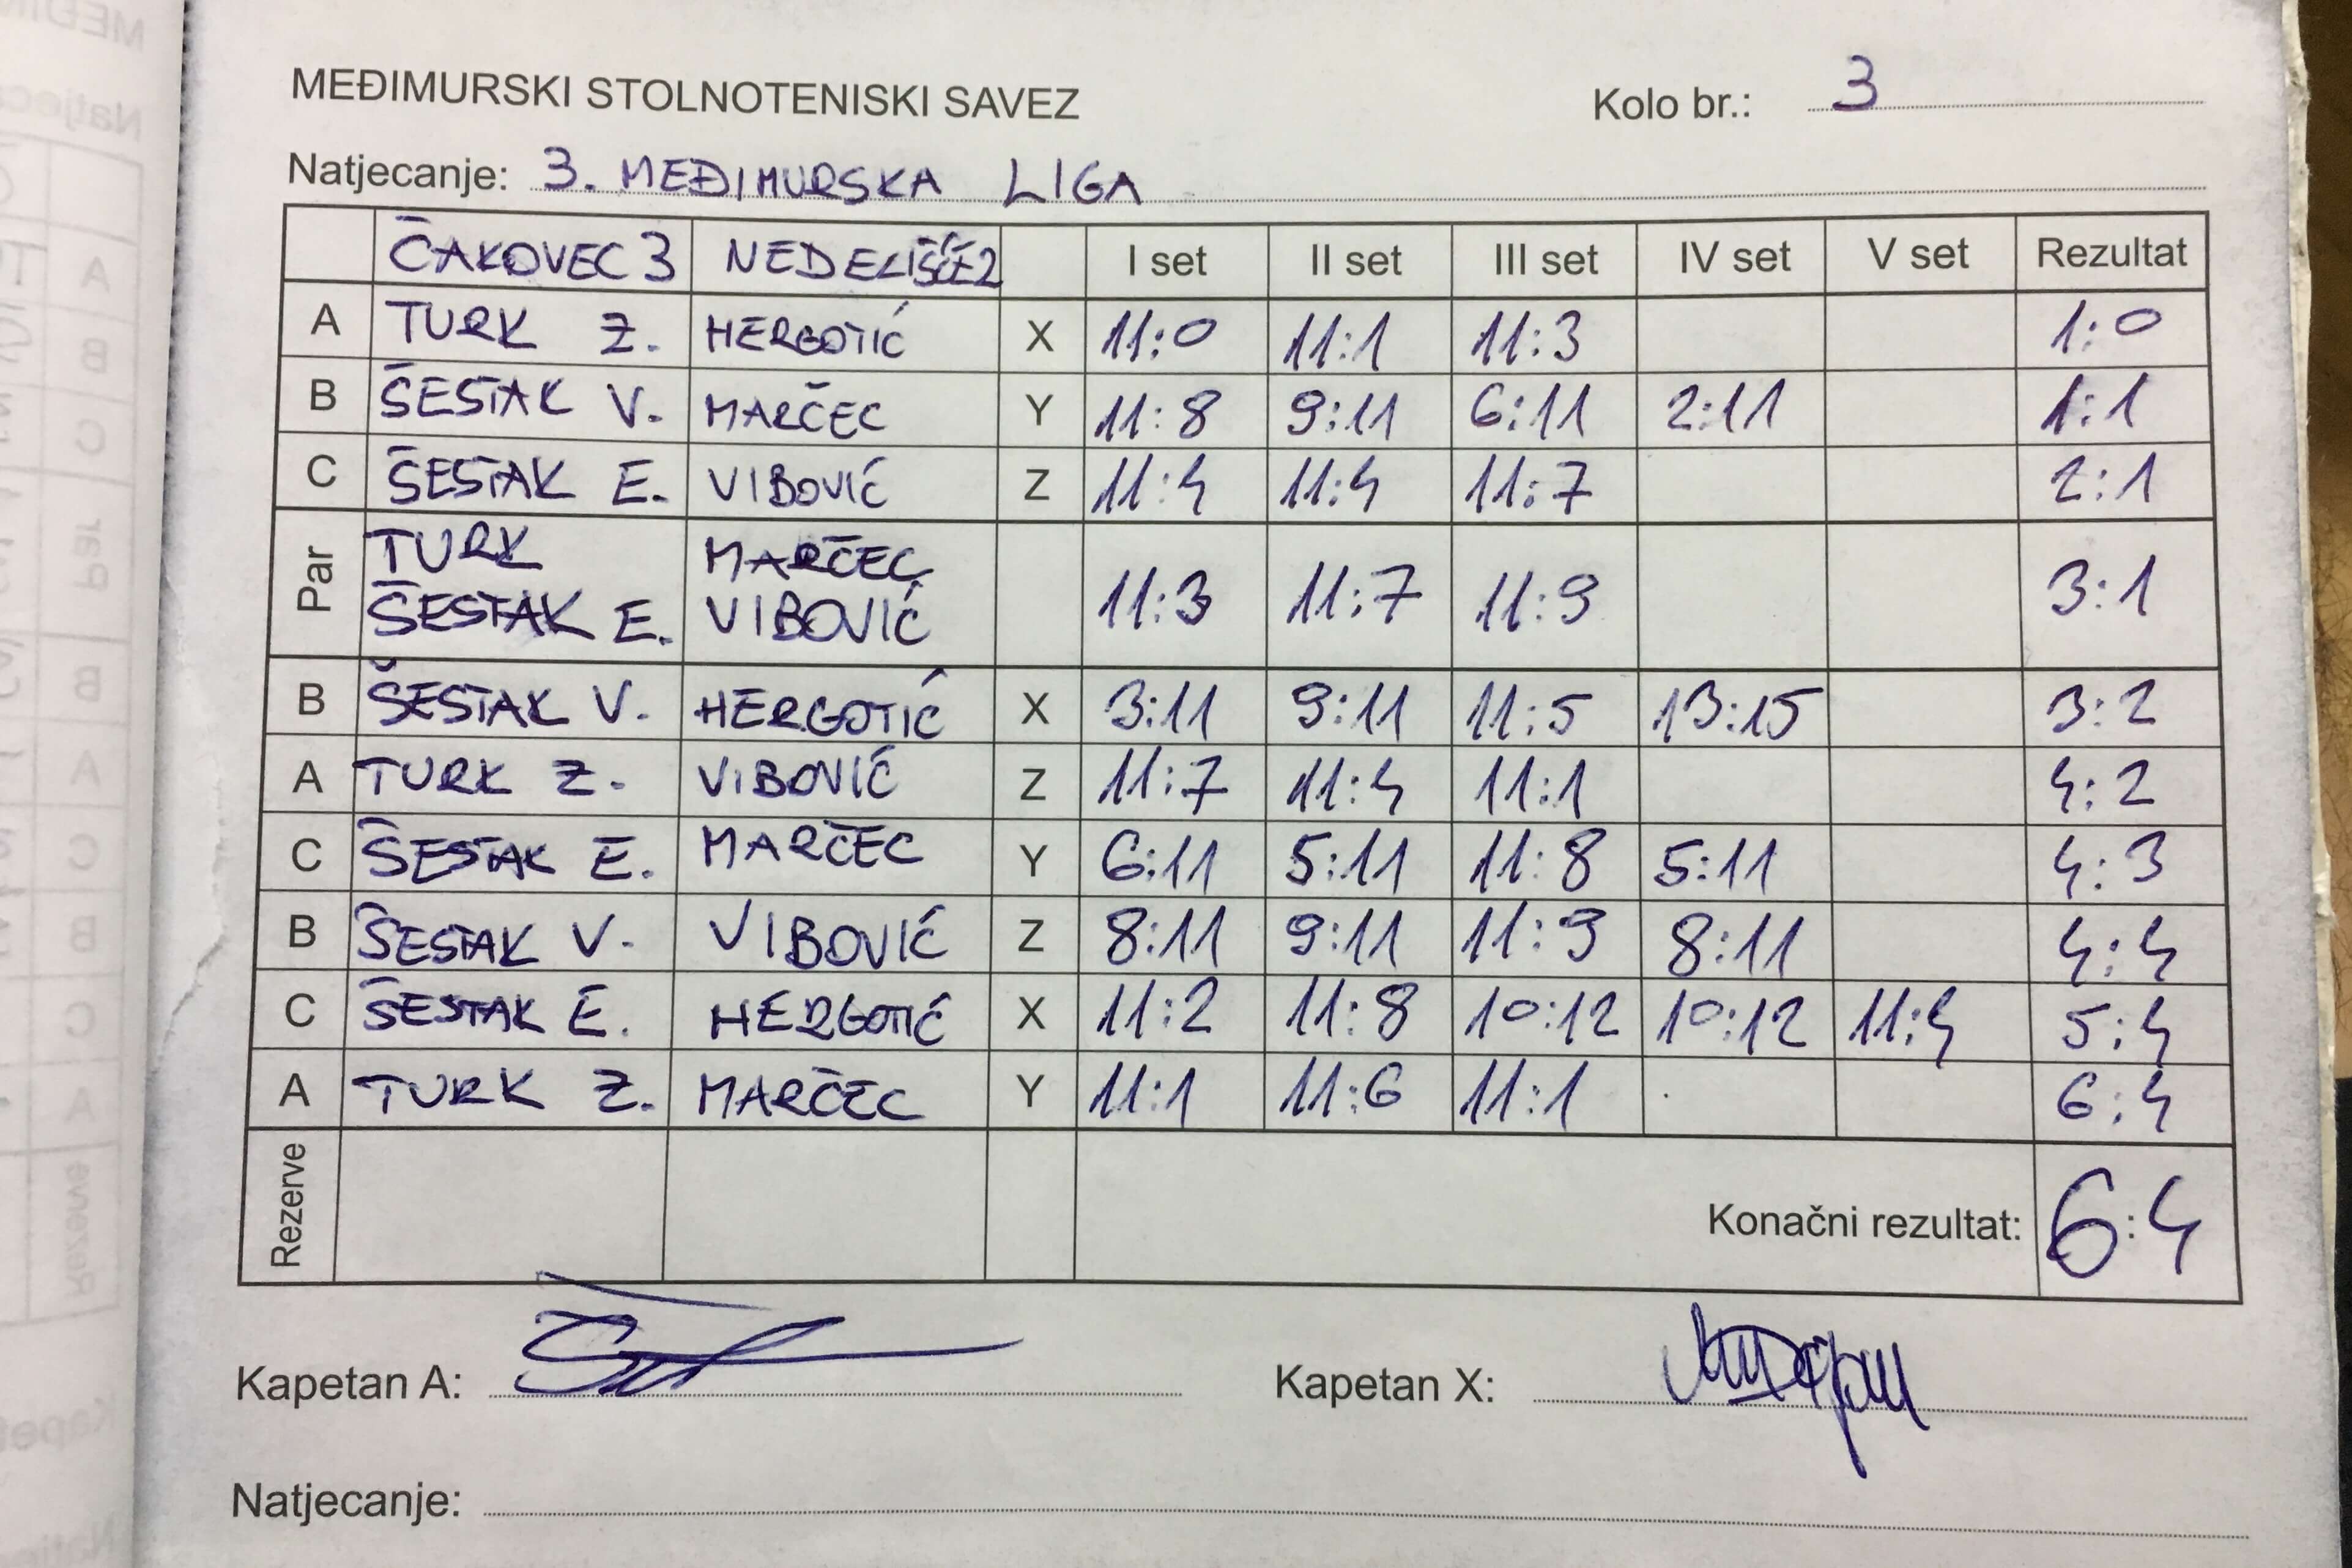 MEĐIMURSKI STOLNOTENISKI SAVEZ Kolo br.: 3
Natjecanje: 3. MEĐIMURSKA LIGA
ČAKOVEC 3 NEDELIŠĆE 2 I set II set III set IV set V set Rezultat
A TURK Z. HERGOTIĆ X 11:0 11:1 11:3 1:0
B ŠESTAK V. MARČEC Y 11:8 9:11 6:11 2:11 1:1
C ŠESTAK E. VIBOVIĆ Z 11:4 11:4 11:7 2:1
Par TURK MARČEC 11:3 11:7 11:9 3:1
ŠESTAK E. VIBOVIĆ
B ŠESTAK V. HERGOTIĆ X 3:11 9:11 11:5 13:15 3:2
A TURK Z. VIBOVIĆ Z 11:7 11:4 11:1 4:2
C ŠESTAK E. MARČEC Y 6:11 5:11 11:8 5:11 4:3
B ŠESTAK V. VIBOVIĆ Z 8:11 9:11 11:9 8:11 4:4
C ŠESTAK E. HERGOTIĆ X 11:2 11:8 10:12 10:12 11:4 5:4
A TURK Z. MARČEC Y 11:1 11:6 11:1 6:4
Rezerve Konačni rezultat: 6:4
Kapetan A: Kapetan X:
Natjecanje: